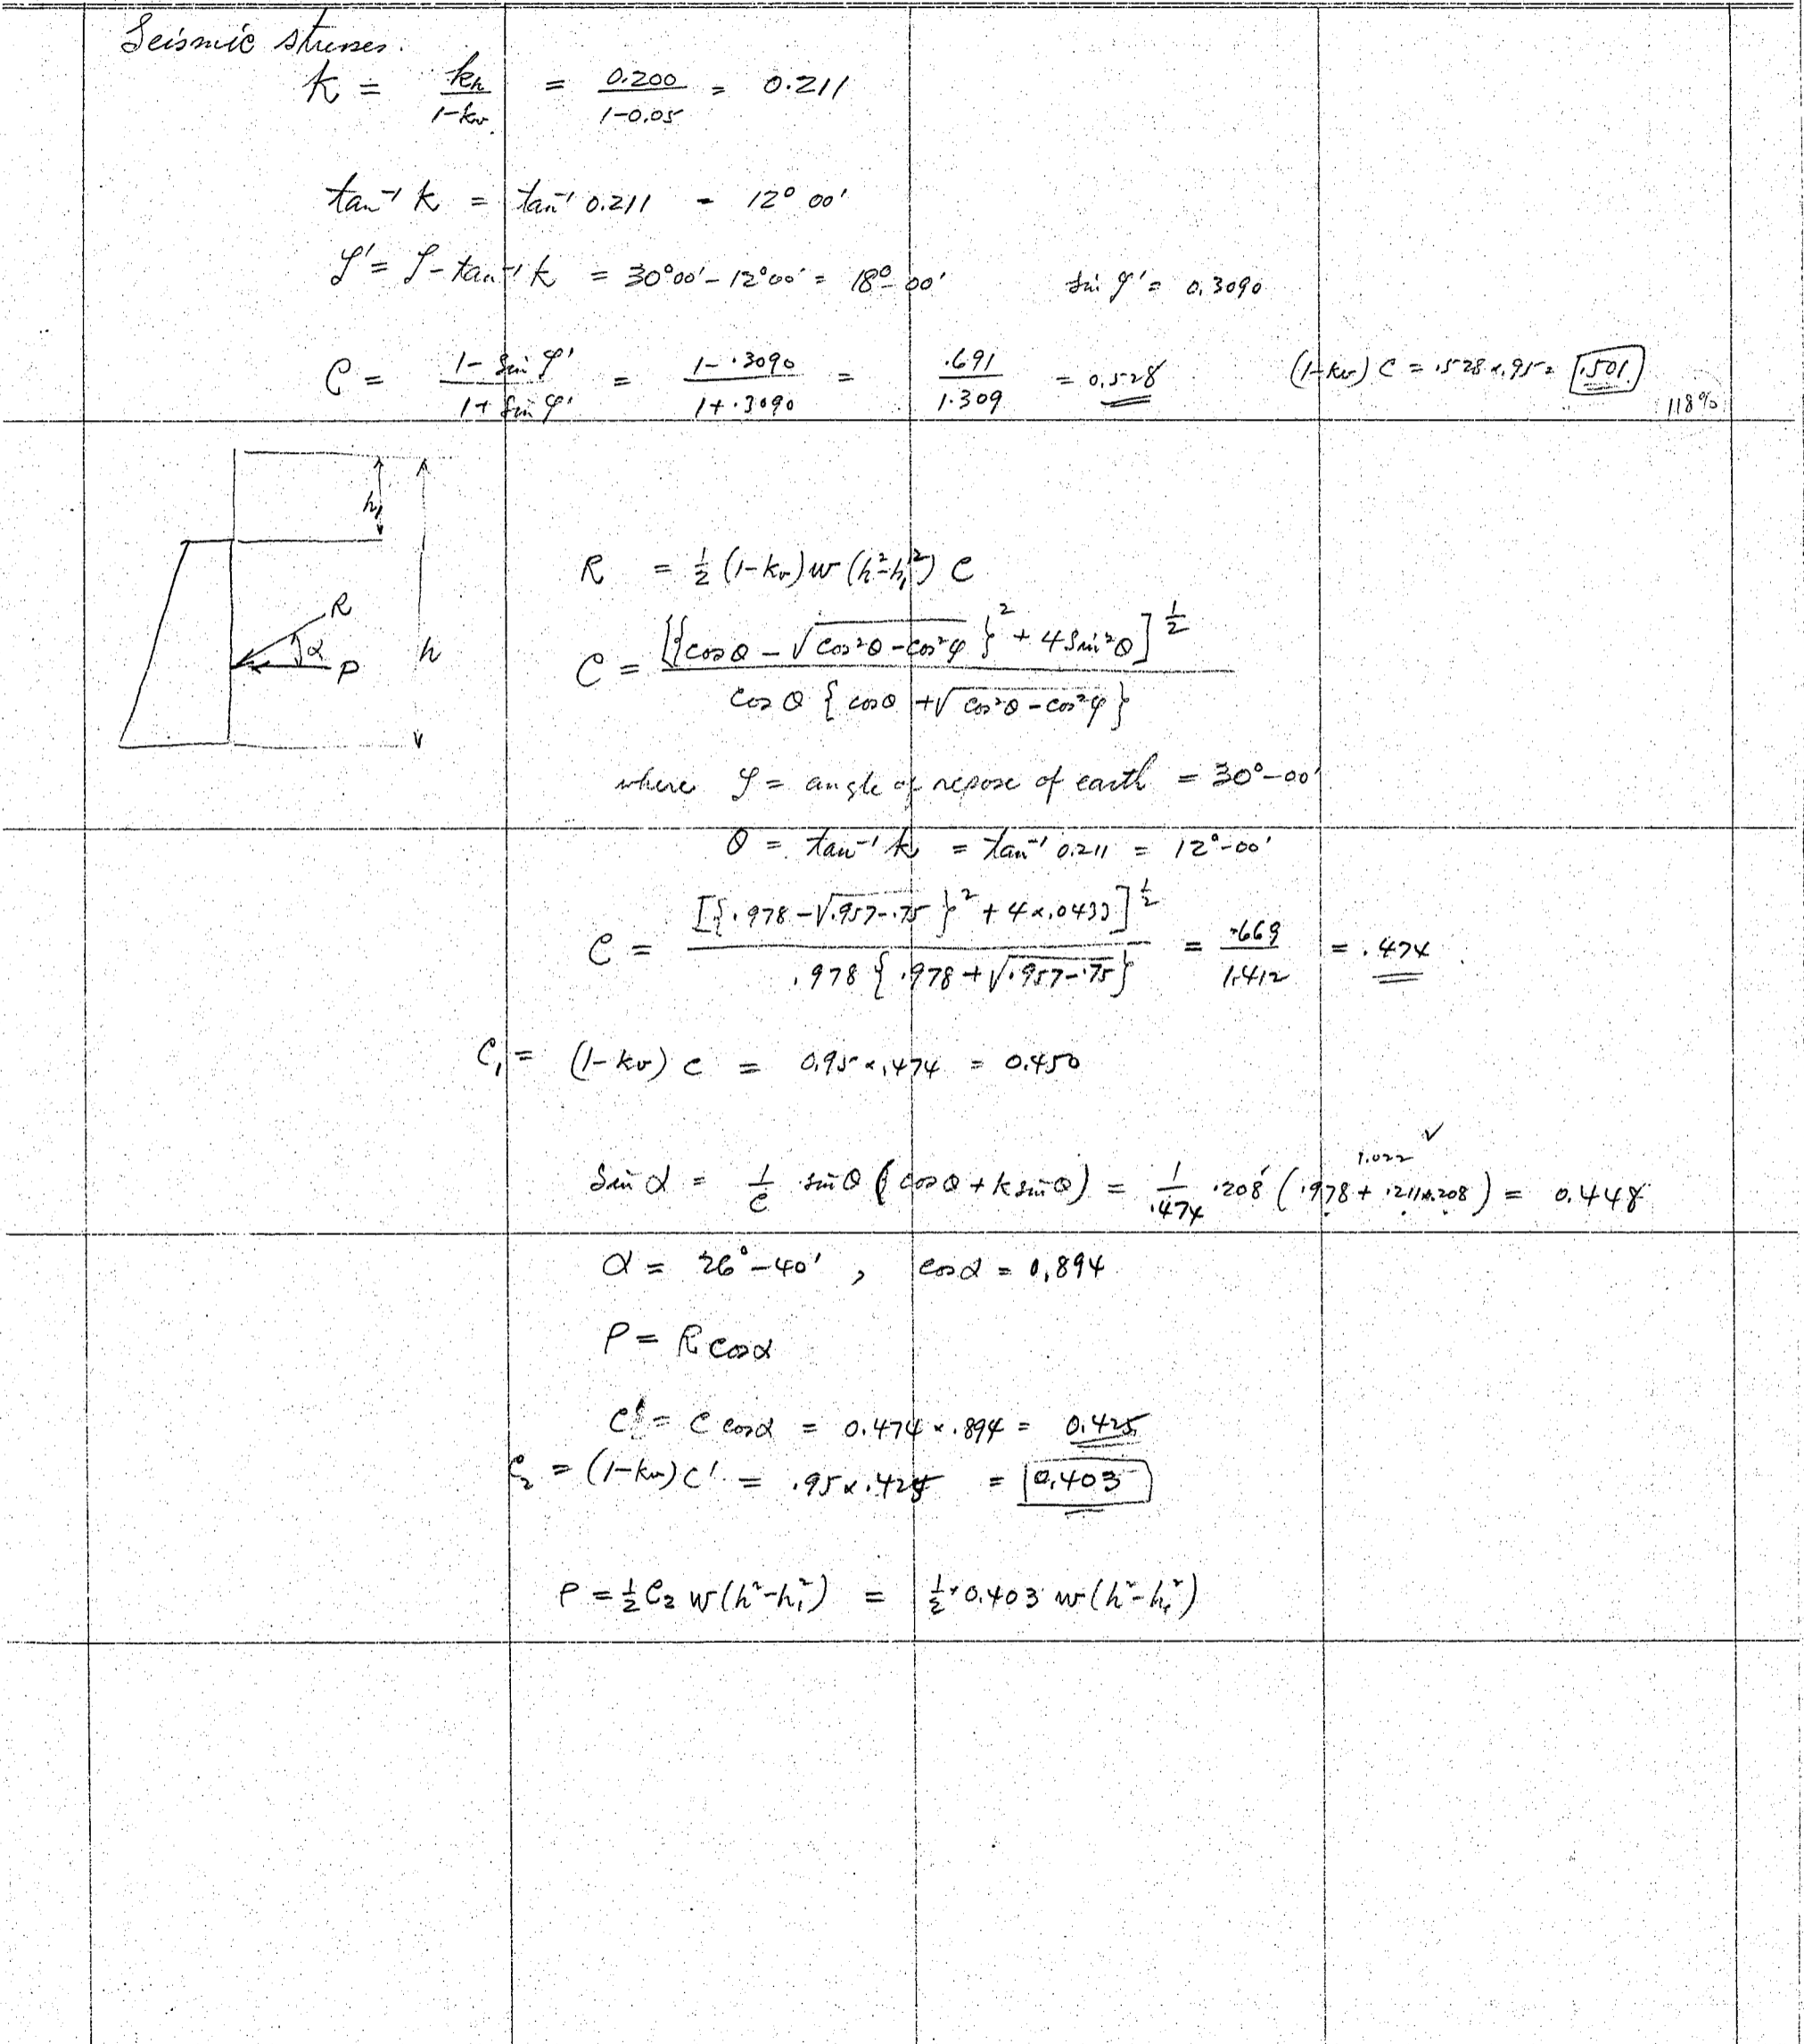 Seismic stresses.
k = kh / (1-kv) = 0.200 / (1-0.05) = 0.211
tan⁻¹ k = tan⁻¹ 0.211 = 12° 00'
φ' = φ - tan⁻¹ k = 30°00' - 12°00' = 18°-00' sin φ' = 0.3090
C = (1 - sin φ') / (1 + sin φ') = (1 - .3090) / (1 + .3090) = .691 / 1.309 = 0.528 (1-kv) C = .528 x .95 = .501
118%
h₁
R = ½ (1-kv) w (h² - h₁²) C
R
α
P
h
C = [{cos θ - √(cos²θ - cos²φ)}² + 4 sin²θ]^½ / cos θ {cos θ + √(cos²θ - cos²φ)}
where φ = angle of repose of earth = 30°-00'
θ = tan⁻¹ k = tan⁻¹ 0.211 = 12°-00'
C = [{.978 - √(.957-.75)}² + 4 x .0433]^½ / .978 {.978 + √(.957-.75)} = .669 / 1.412 = .474
C₁ = (1-kv) C = 0.95 x .474 = 0.450
1.022 ✓
sin α = 1/C sin θ (cos θ + k sin θ) = 1/.474 .208 (.978 + .211 x .208) = 0.448
α = 26°-40', cos α = 0.894
P = R cos α
C' = C cos α = 0.474 x .894 = 0.425
C₂ = (1-kv) C' = .95 x .425 = 0.403
P = ½ C₂ w (h² - h₁²) = ½ x 0.403 w (h² - h₁²)